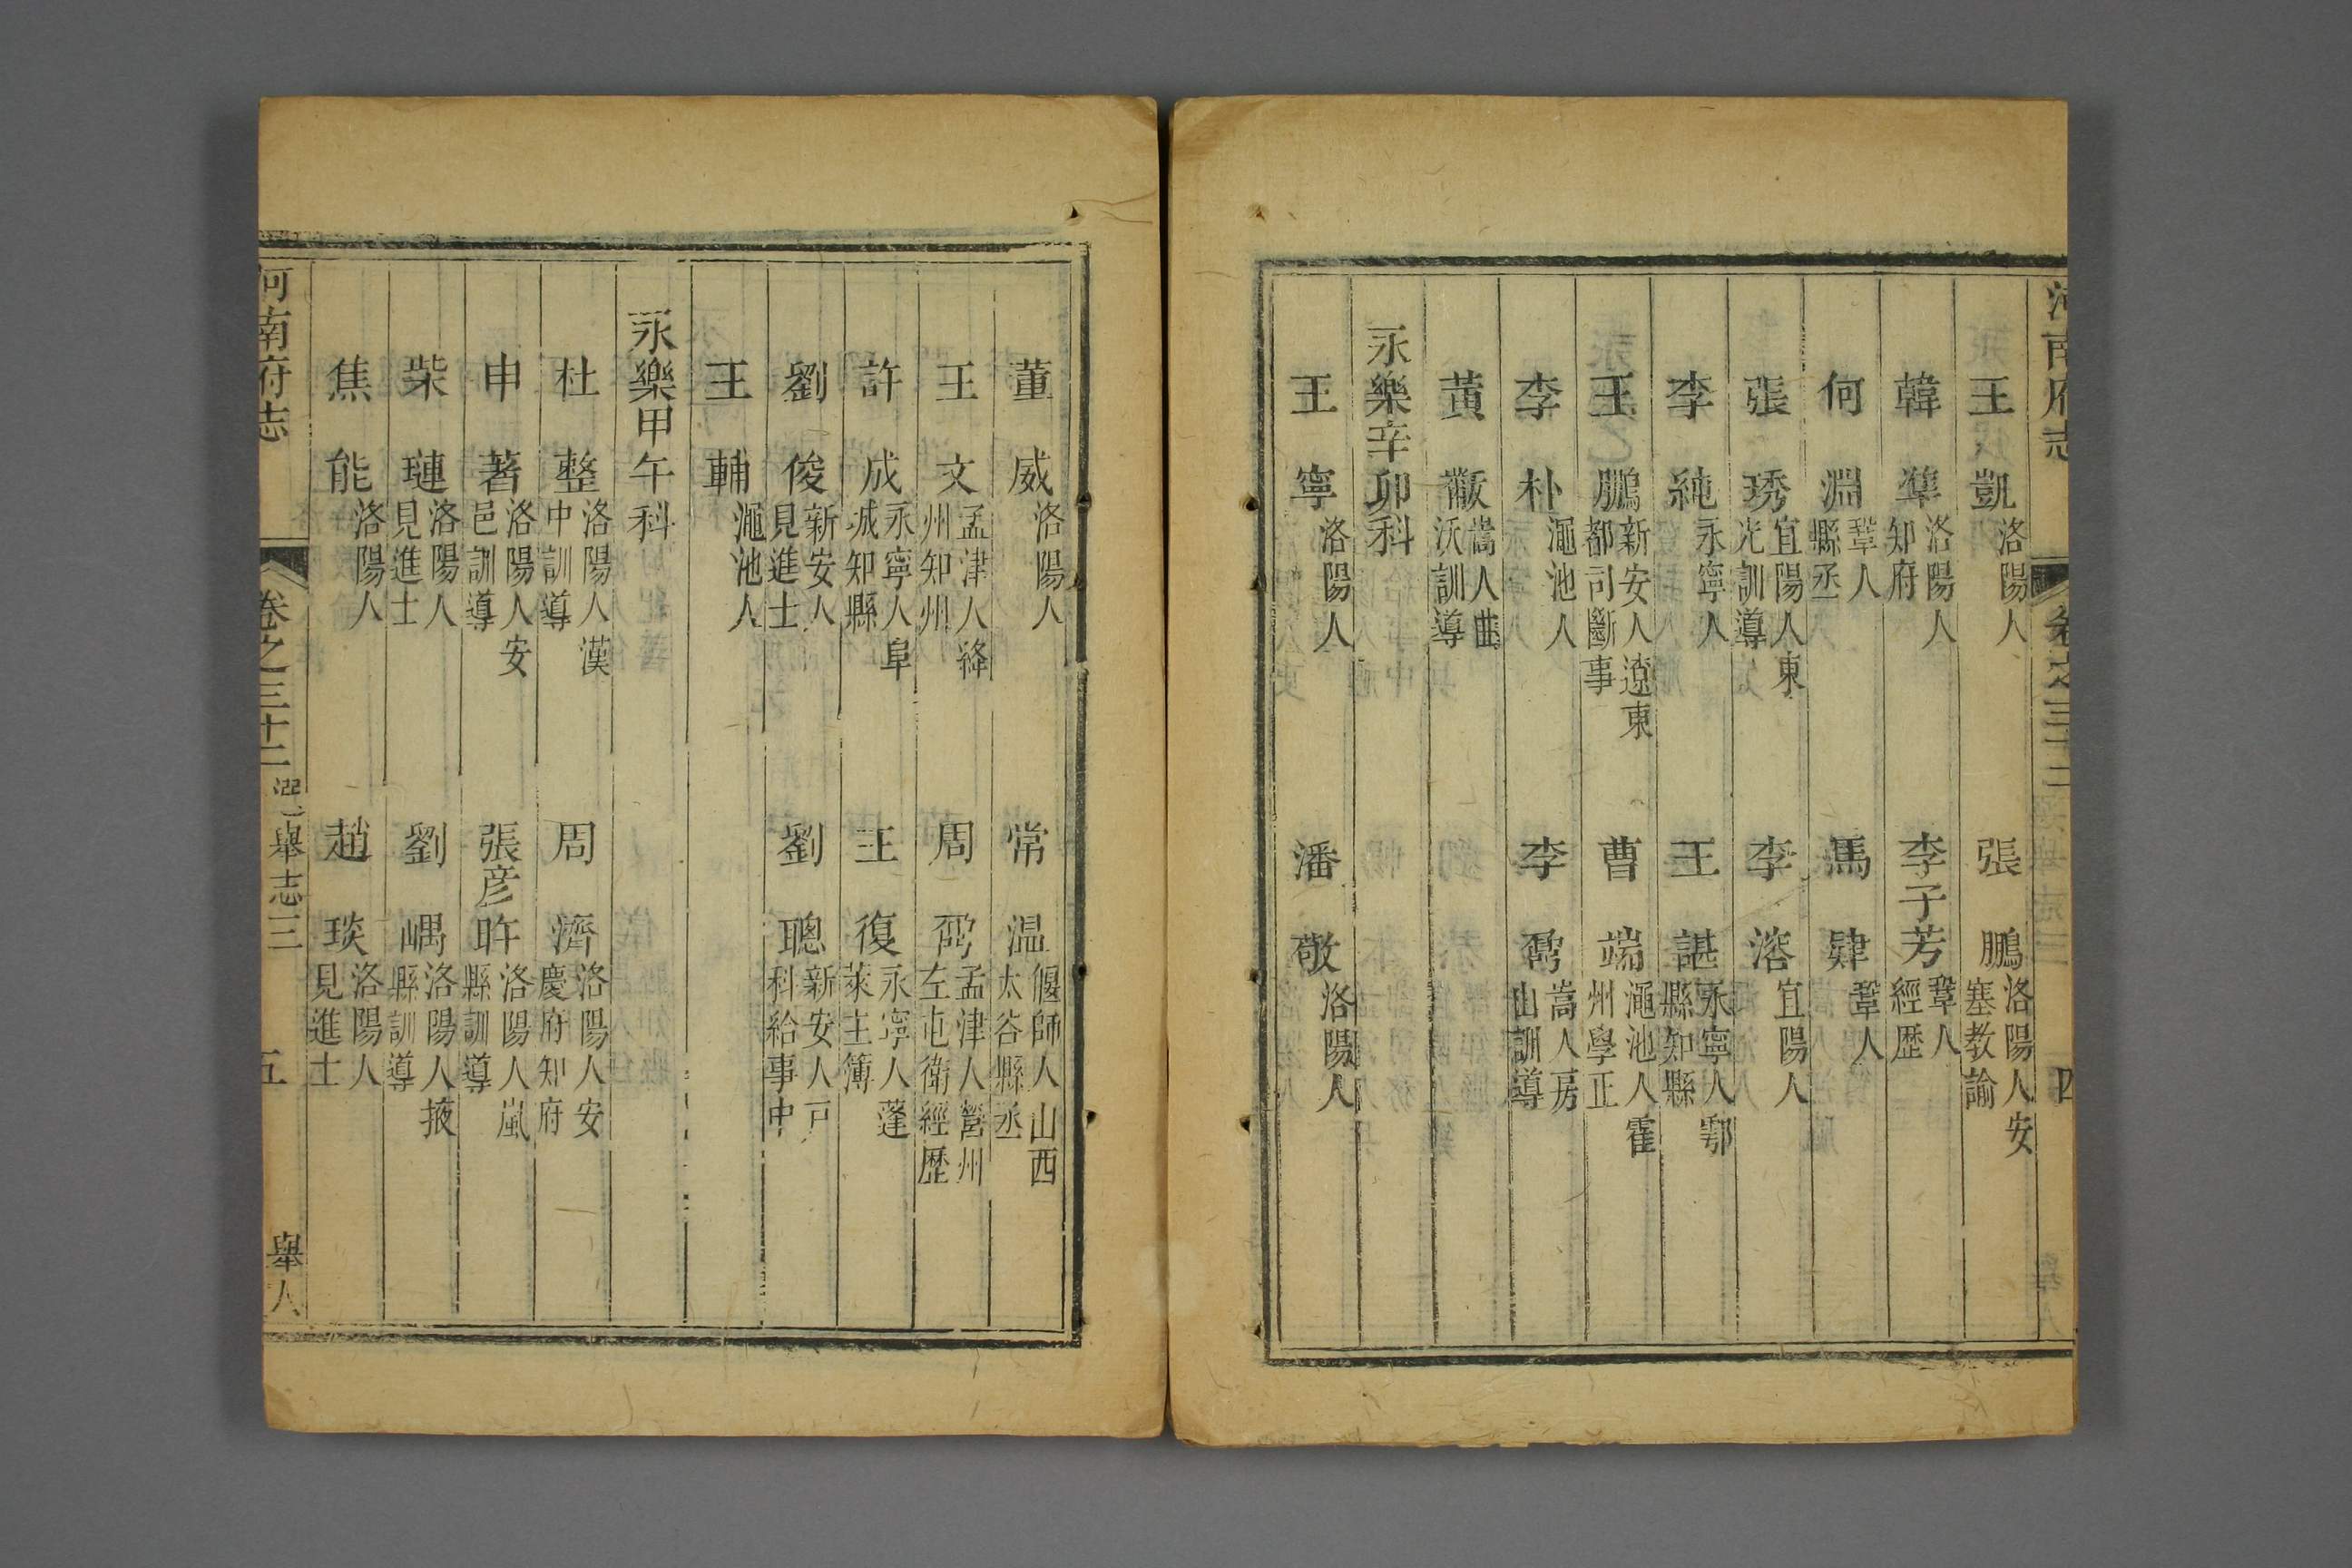 河南府志 卷之三十二 四
王凱 洛陽人 張鵬 洛陽人安塞教諭
韓準 洛陽人知府 李子芳 鞏人經歷
何淵 鞏人縣丞 馬肄 鞏人
張琇 宜陽人東光訓導 李溶 宜陽人
李純 永寧人 王諶 永寧人鄠縣知縣
王鵬 新安人遼東都司斷事 曹端 澠池人霍州學正
李朴 澠池人 李霱 嵩人房山訓導
黃黻 嵩人曲沃訓導
永樂辛卯科
王寧 洛陽人 潘敬 洛陽人
董威 洛陽人 常温 偃師人山西太谷縣丞
王文 孟津人絳州知州 周 孟津人營州左屯衛經歷
許成 永寧人阜城知縣 王復 永寧人蓬萊主簿
劉俊 新安人見進士 劉聰 新安人戶科給事中
王輔 澠池人
永樂甲午科
杜整 洛陽人漢中訓導 周濟 洛陽人安慶府知府
申著 洛陽人安邑訓導 張彥旿 洛陽人嵐縣訓導
柴璉 洛陽人見進士 劉嵎 洛陽人掖縣訓導
焦能 洛陽人 趙琰 洛陽人見進士
河南府志 卷之三十二 選舉志三 五 舉人